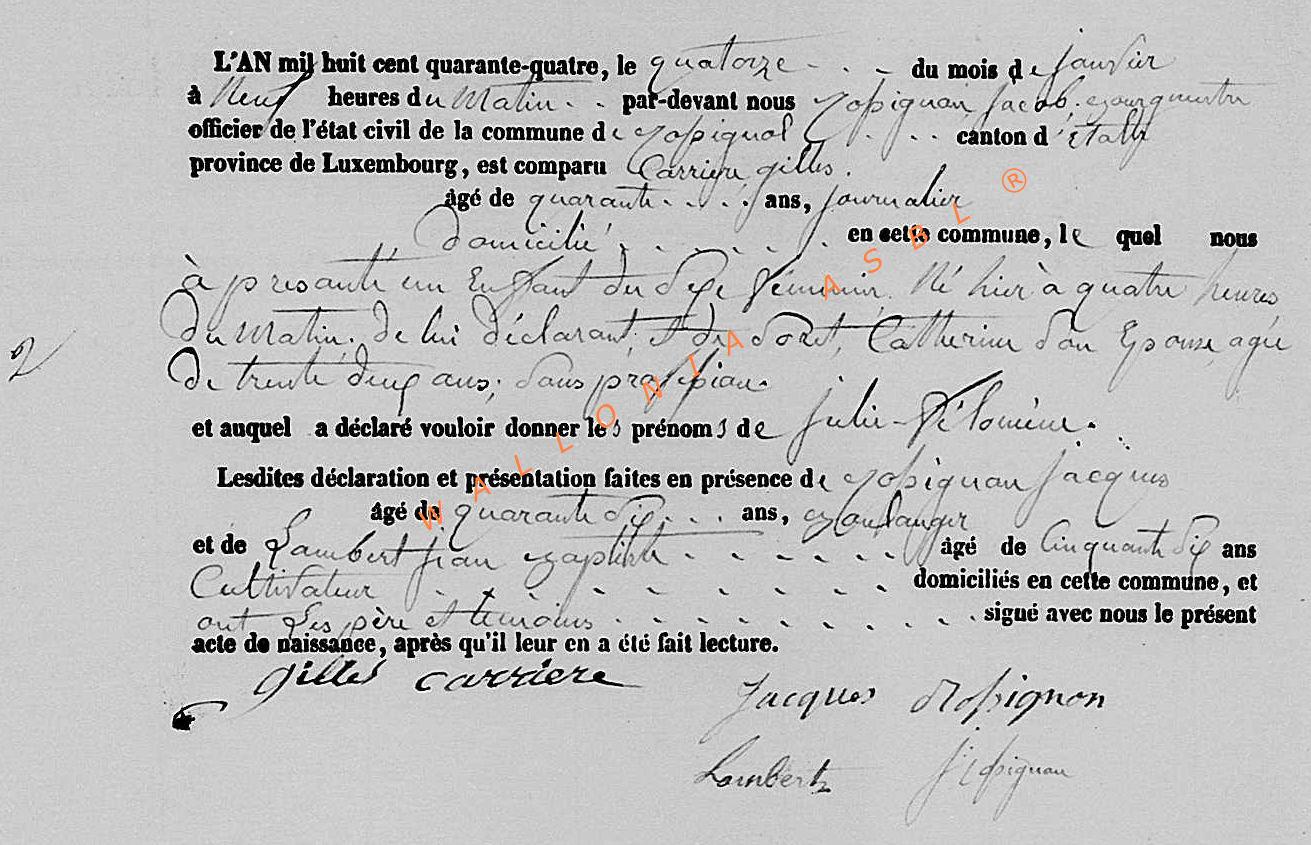 L'AN mil huit cent quarante-quatre, le quatorze - . - du mois de janvier
à Neuf heures du Matin . . par-devant nous Rossignon Jacob, Bourguemestre
officier de l'état civil de la commune de Rossignol . . . canton d'étalle
province de Luxembourg, est comparu Carriere gilles.
âgé de quarante . . . . ans, journalier
domicilié . . . . . . en cette commune, le quel nous
à présenté un Enfant du Sexe féminin, Né hier à quatre heures
Du Matin, de lui déclarant, et de Catherine son Epouse, agée
De trente deux ans, sans profession.
et auquel a déclaré vouloir donner les prénoms de julie-félomène.
Lesdites déclaration et présentation faites en présence de Rossignon jacques
âgé de quarante six . . . ans, Boulanger
et de Lambert jean Baptiste - - - - - - - âgé de Cinquante six ans
Cultivateur . . - - - - - - domiciliés en cette commune, et
ont Les père et temoins . . . . . . . . . signé avec nous le présent
acte de naissance, après qu'il leur en a été fait lecture.
gilles carriere
Jacques Rossignon
Lambert J Rossignon
2
WALLONIA ASBL ®